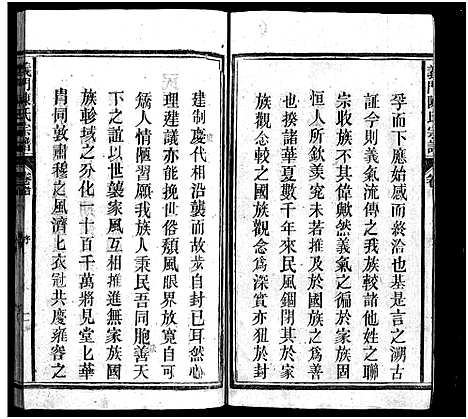 義門陳氏宗譜
卷首
孚而下應始感而非然也是言之溯古
証今則義氣流傳之我族族姓之聯
宗收族其一偉歟然義氣之徧於家族
恒人所欽羡究未若推及於國族之爲善
揆諸華夏數千年來民風錮閉其於家
族觀念較之國族觀念爲深實亦狃於封
建制慶代相沿襲而故步自封已耳然心
理建議亦能挽世俗頹風眼界放寛自可
矯人情陋習願我族人秉民吾同胞善天
下之誼以世襲家風互相推進無家族國
族畛域之分化一十百千萬將見堂上華
胄同敦肅穆之風濟上衣冠共慶雍容之
義門陳氏宗譜
卷首
序